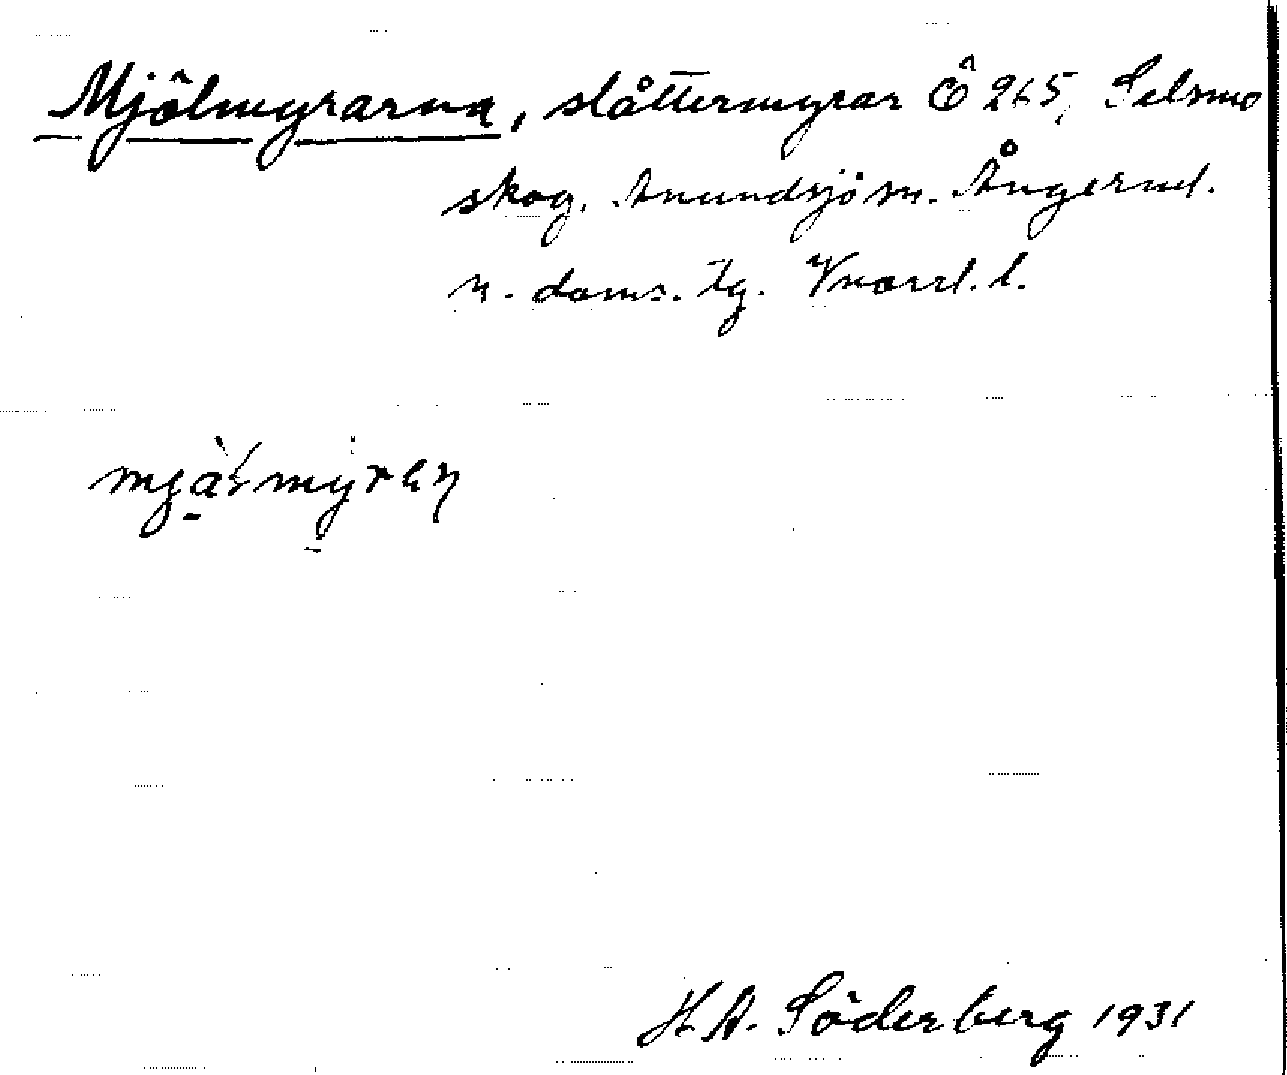 Mjölmyrarna, slåttermyrar Ö 265, Selsmo
skog, Anundsjö sn. Ångerml.
n. doms. tg. Vnorrl. l.
H. A. Söderberg 1931